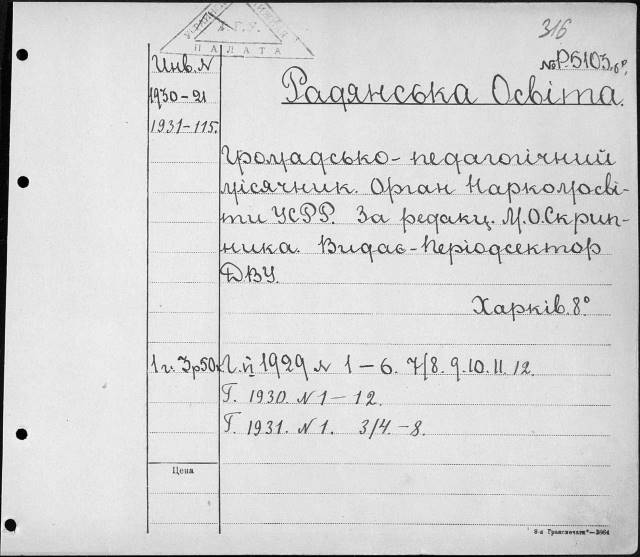 316
№ Р.5103 б°
ПАЛАТА
Инв. N
1930-21
1931-115.
Радянська Освіта.
Громадсько-педагогічний
місячник. Орган Наркомосві-
ти УСРР. За редакц. М.О. Скрип-
ника. Видає-Періодсектор
ДВУ.
Харків. 8°
Г. й 1929 N 1-6. 7/8. 9. 10. 11. 12.
Г. 1930. N 1-12.
Г. 1931. N 1. 3/4.-8.
Цена